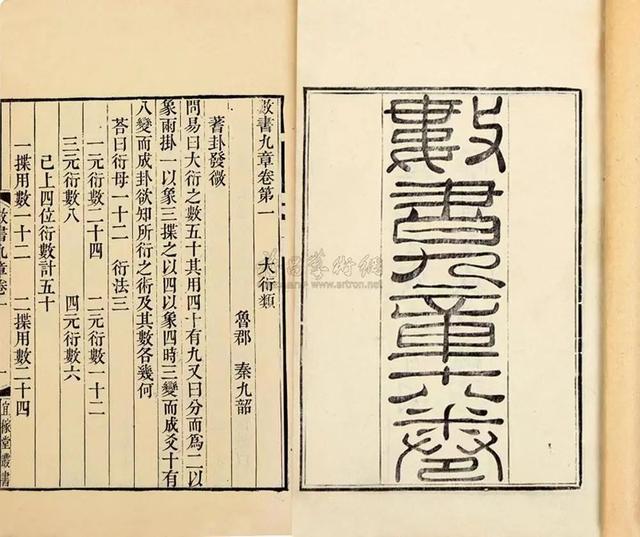 數書九章十八卷
數書九章卷第一 大衍類
魯郡 秦九韶
蓍卦發微
問易曰大衍之數五十其用四十有九又曰分而爲二以
象兩掛一以象三揲之以四以象四時三變而成爻十有
八變而成卦欲知所衍之術及其數各幾何
荅曰衍母一十二 衍法三
一元衍數二十四 二元衍數一十二
三元衍數八 四元衍數六
已上四位衍數計五十
一揲用數一十二 二揲用數二十四
數書九章卷一 一 宜稼堂叢書
藝術網
www.artron.net